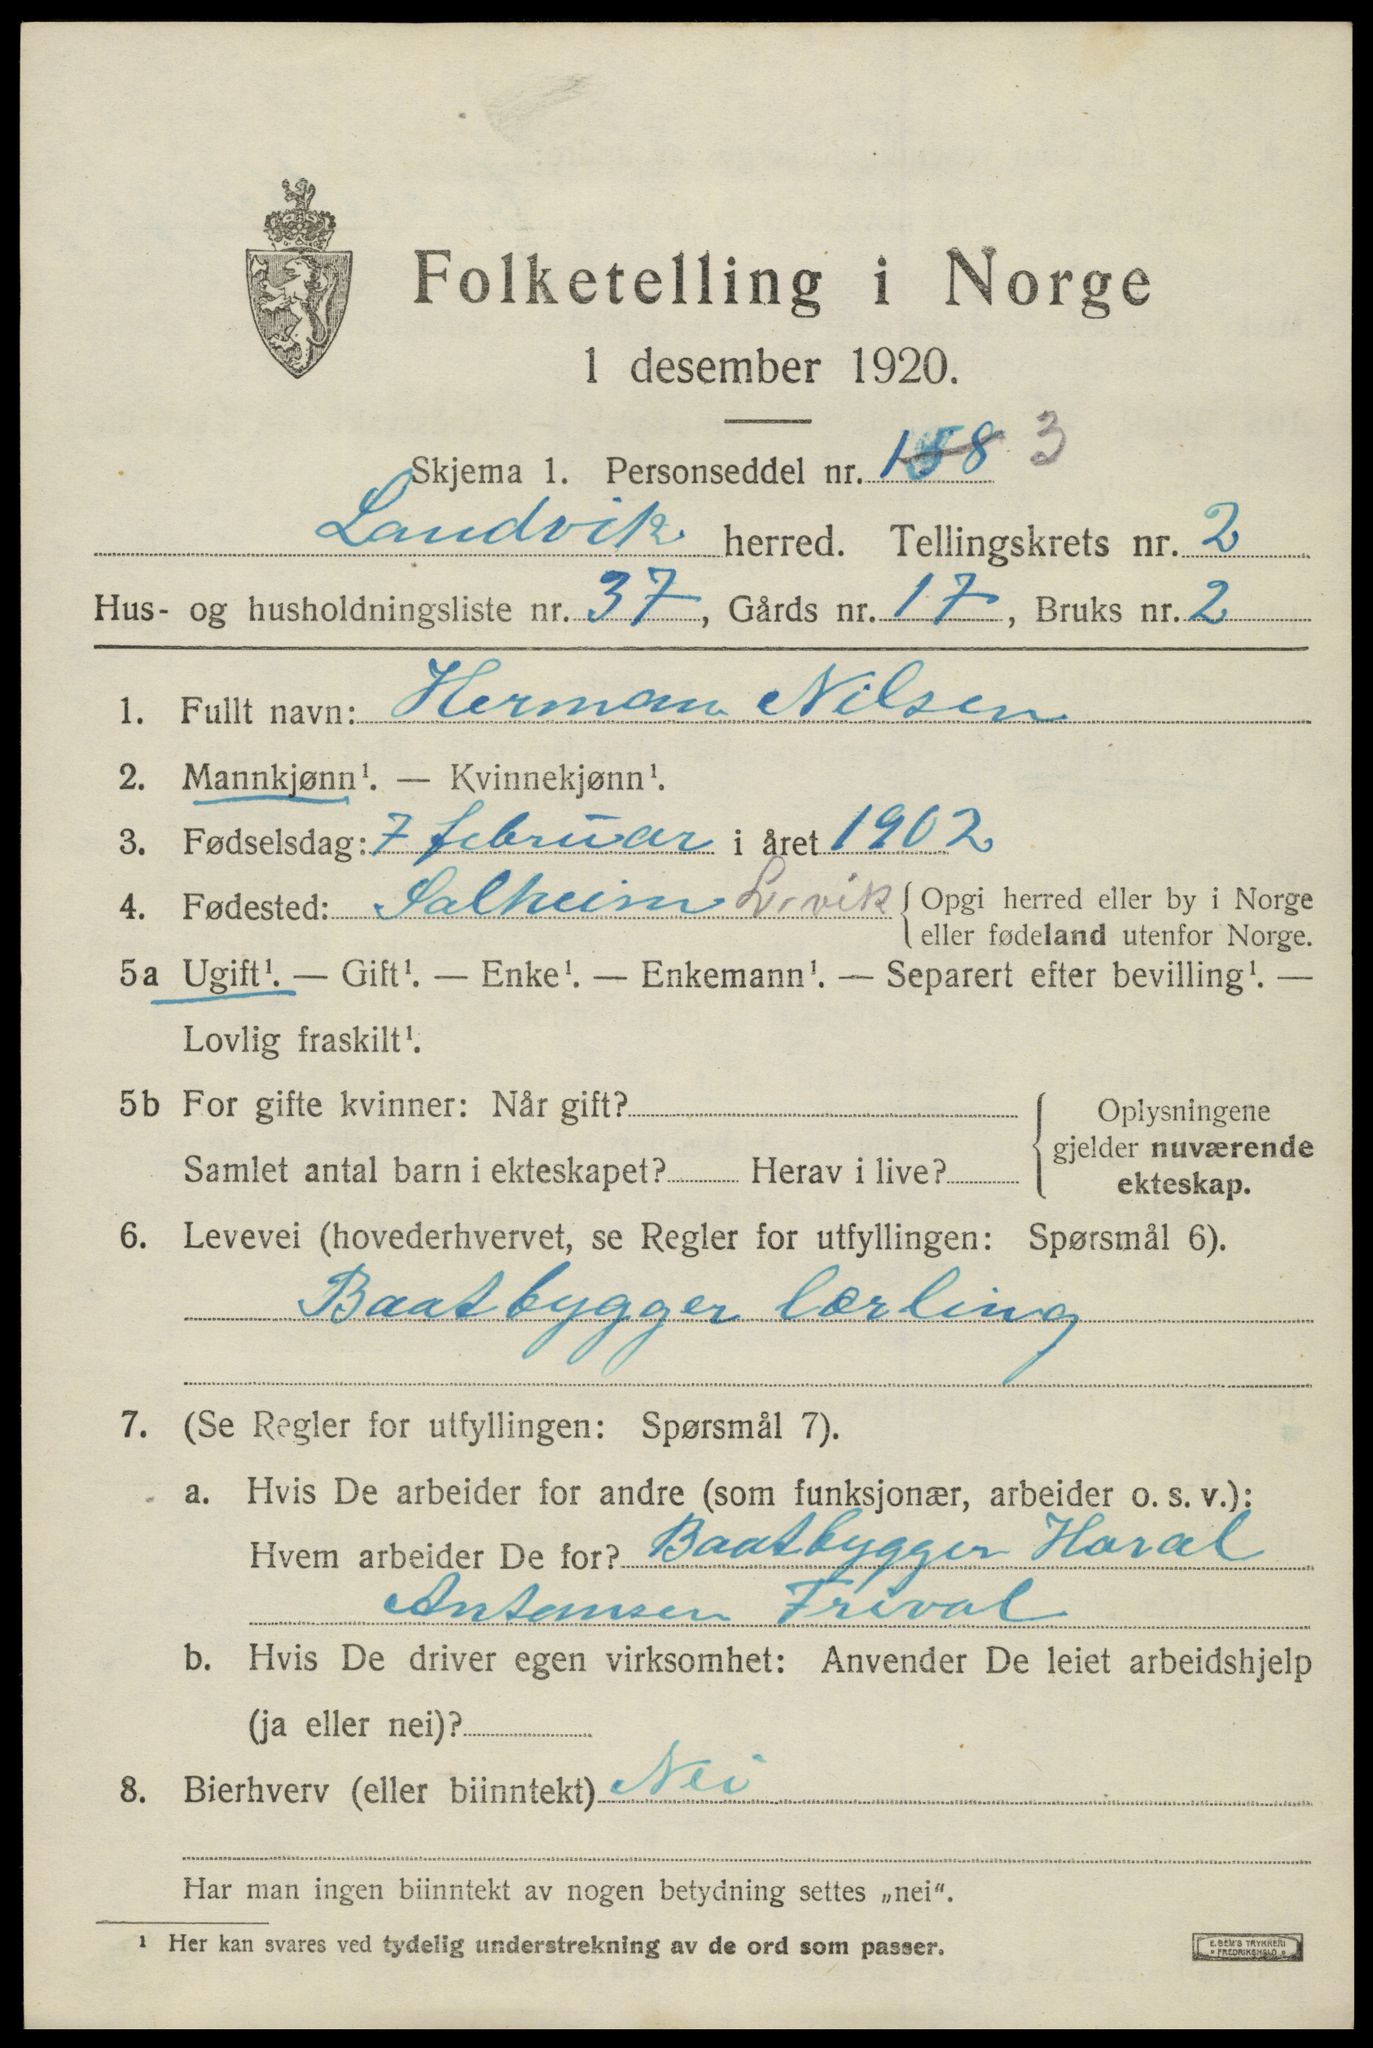 Folketelling i Norge
1 desember 1920.
Skjema 1. Personseddel nr. 158 3
Landvik herred. Tellingskrets nr. 2
Hus- og husholdningsliste nr. 37, Gårds nr. 17, Bruks nr. 2
1. Fullt navn: Herman Nilsen
2. Mannkjønn¹. — Kvinnekjønn¹.
3. Fødselsdag: 7 februar i året 1902
4. Fødested: Salheim L.vik { Opgi herred eller by i Norge
eller fødeland utenfor Norge.
5a Ugift¹. — Gift¹. — Enke¹. — Enkemann¹. — Separert efter bevilling¹. —
Lovlig fraskilt¹.
5b For gifte kvinner: Når gift?
Samlet antal barn i ekteskapet? Herav i live?
Oplysningene
gjelder nuværende
ekteskap.
6. Levevei (hovederhvervet, se Regler for utfyllingen: Spørsmål 6).
Baatbygger lærling
7. (Se Regler for utfyllingen: Spørsmål 7).
a. Hvis De arbeider for andre (som funksjonær, arbeider o. s. v.):
Hvem arbeider De for? Baatbygger Haral
Antonsen Frivol
b. Hvis De driver egen virksomhet: Anvender De leiet arbeidshjelp
(ja eller nei)?
8. Bierhverv (eller biinntekt) Nei
Har man ingen biinntekt av nogen betydning settes „nei“.
¹ Her kan svares ved tydelig understrekning av de ord som passer.
E. SEM'S TRYKKERI
FREDRIKSHALD